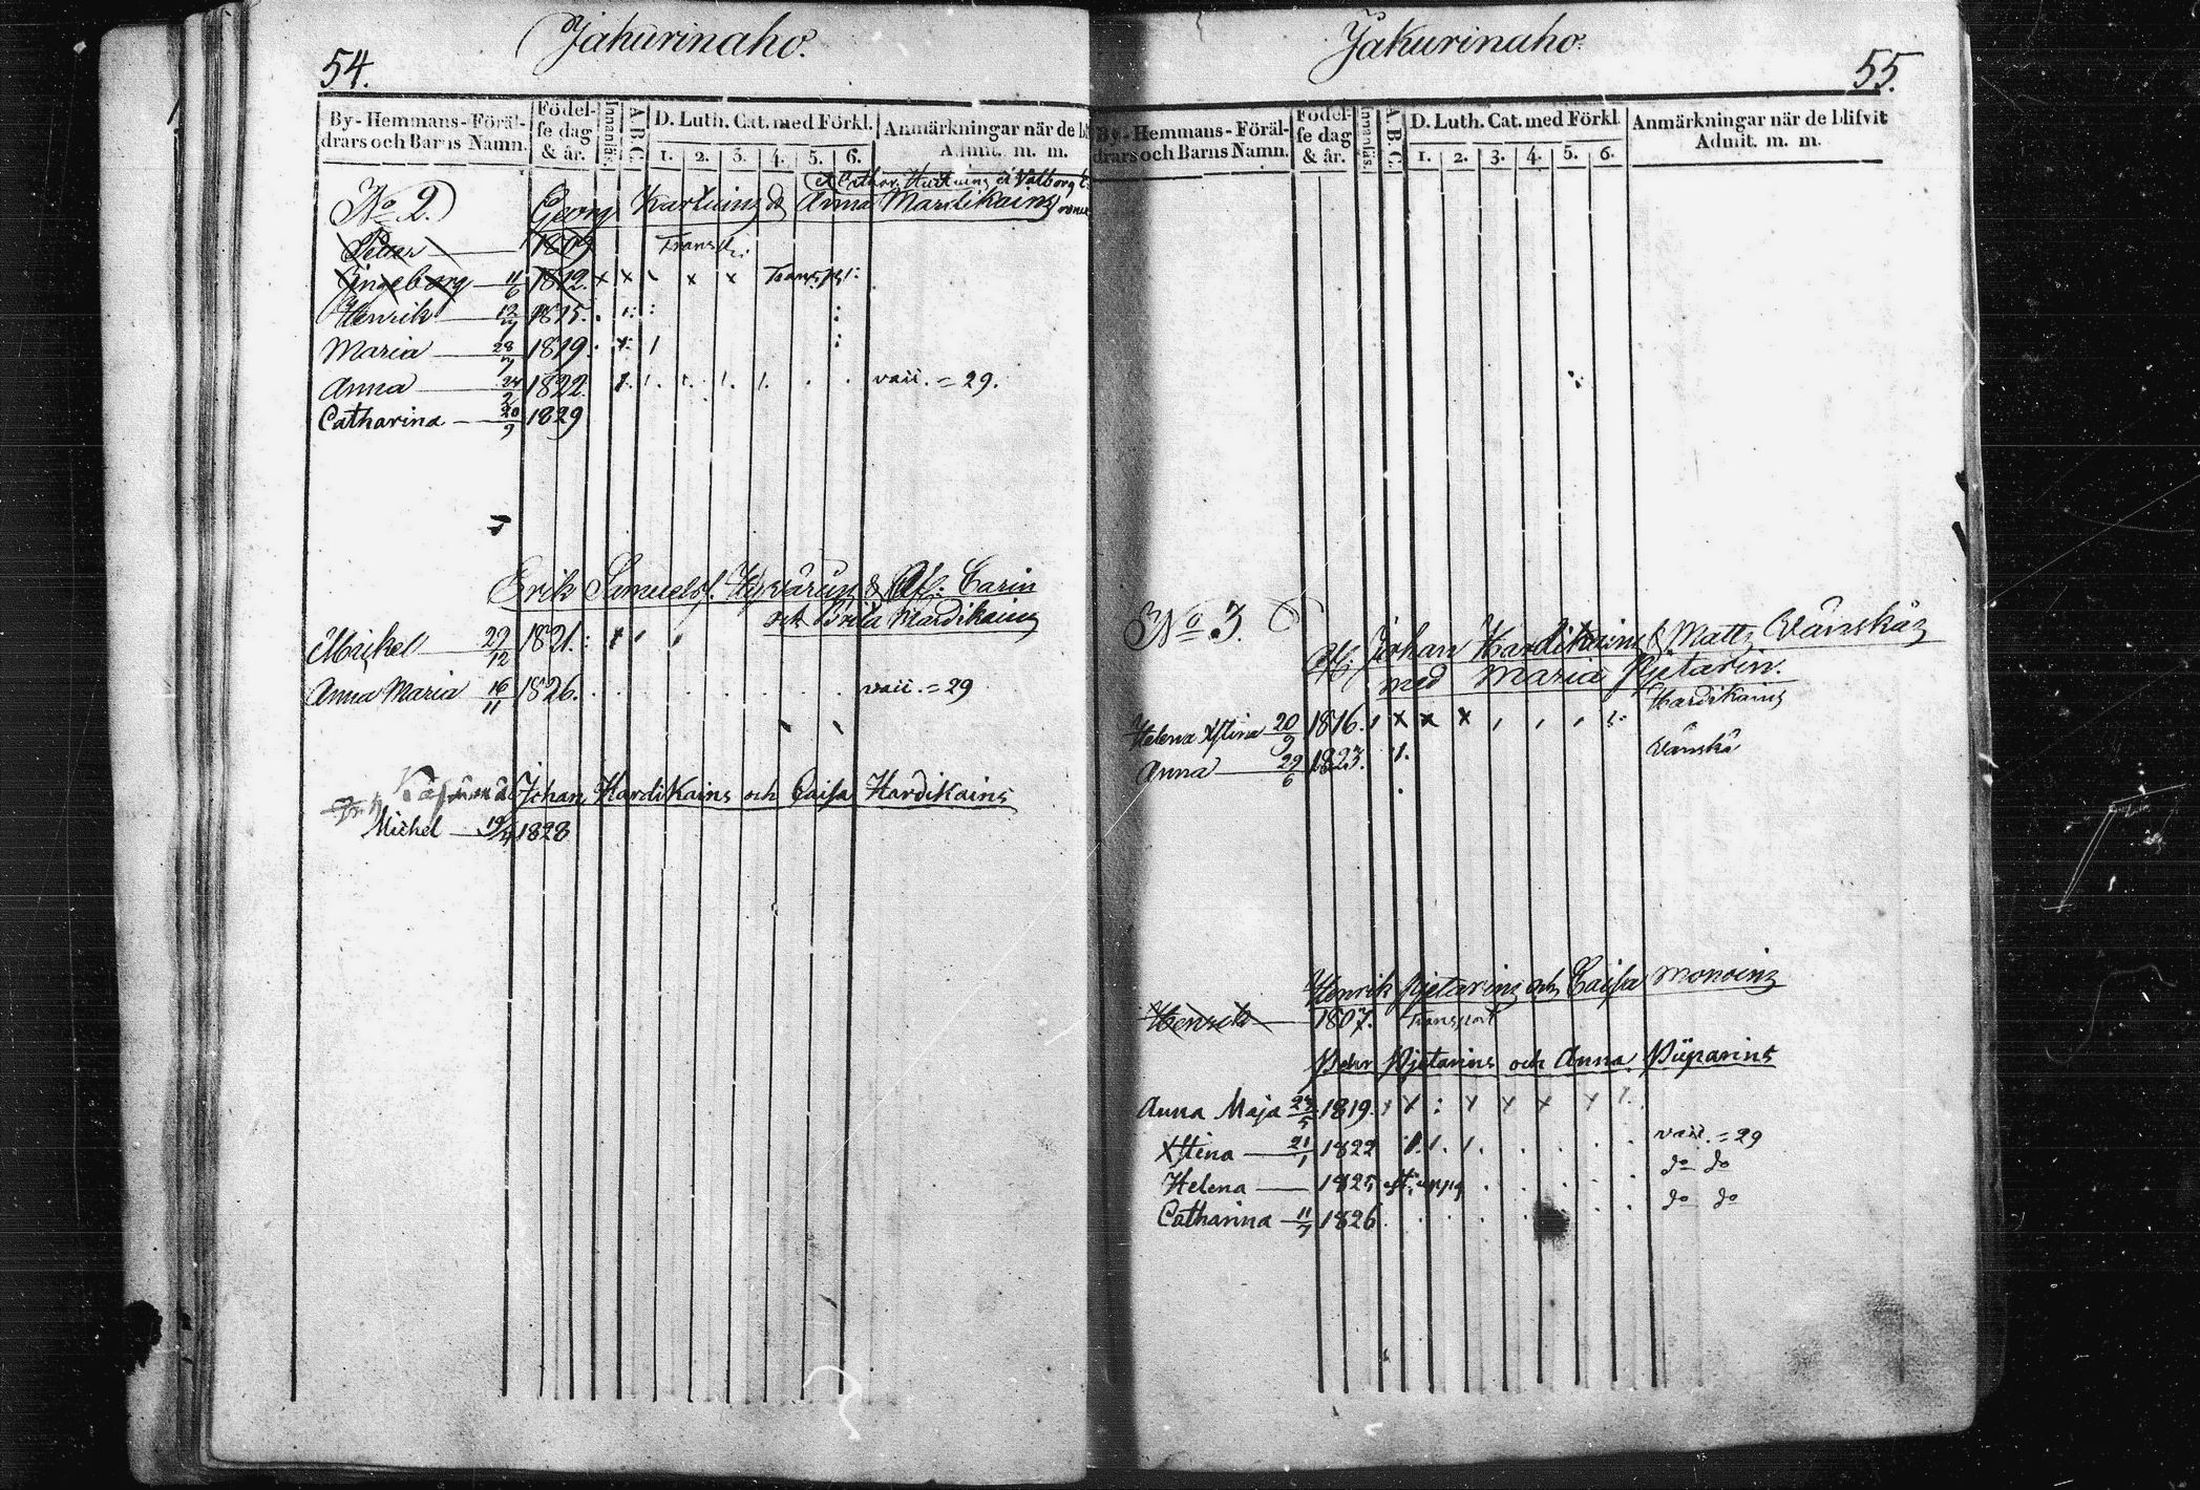 54.
Jakurinaho.
By-Hemmans-Föräl-
drars och Barns Namn.
Födel-
se dag
& år.
Innanläs.
A B C.
D. Luth. Cat. med Förkl.
1. 2. 3. 4. 5. 6.
Anmärkningar när de bl
Admit. m. m.
No 2.
et Cathar. et Valborg
Georg & Anna Mardikains
Peter 1809
Ingeborg 11/6 1812. x x x x Transp:
Henrik 12/7 1815.
Maria 28/7 1819.
Anna 24/2 1822. vacc. = 29.
Catharina 20/9 1829
Erik Samuelss. & Af: Carin
och Brita Mardikains
Michel 22/12 1821.
Anna Maria 16/11 1826. vacc. = 29
Johan Hardikains och Caisa Hardikains
Michel 1828
Jakurinaho
55.
By-Hemmans-Föräl-
drars och Barns Namn.
Födel-
se dag
& år.
Innanläs.
A B C.
D. Luth. Cat. med Förkl
1. 2. 3. 4. 5. 6.
Anmärkningar när de blifvit
Admit. m. m.
No 3.
Af: Johan Hardikains & Matts Vänskäs
med Maria Pjetarin.
Hardikains
Helena Xstina 20/9 1816. x x x
Vänskä
Anna 29/6 1823.
Henrik Pjetarins och Caisa Monoins
Henrik 1807. Transport
Pehr Pjetarins och Anna Piiparins
Anna Maja 1819.
Xstina 21/1 1822 vacc. = 29
Helena 1825 do do
Catharina 11/7 1826. do do